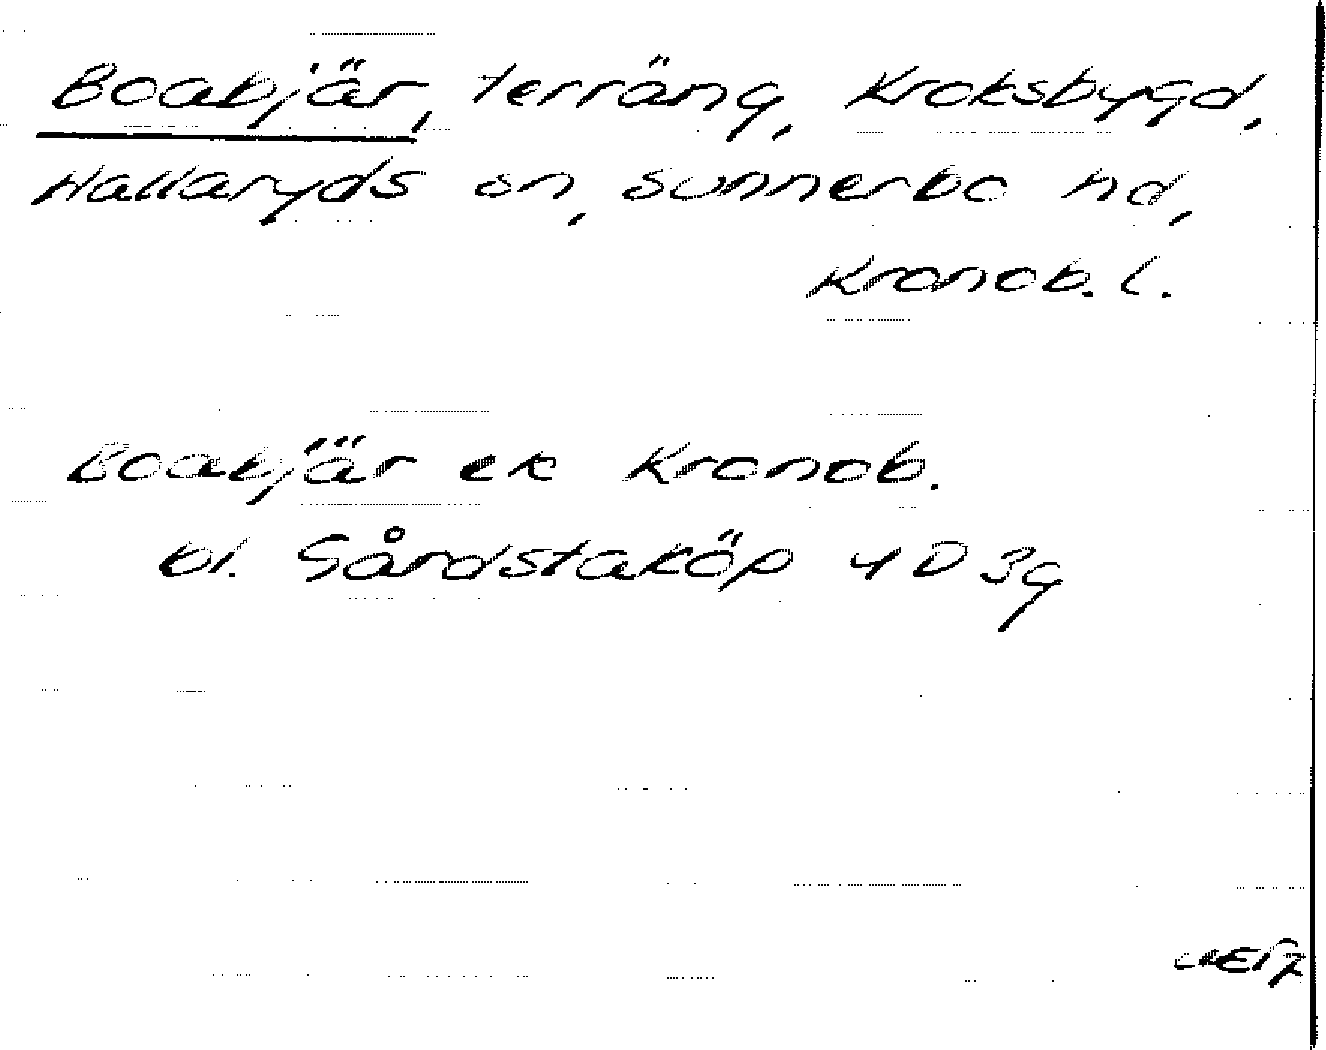 Boabjär, terräng, Kroksbygd,
Hallaryds sn, Sunnerbo hd,
Kronob. l.
Boabjär ek Kronob.
bl. Sårdstaköp 4 D 3g